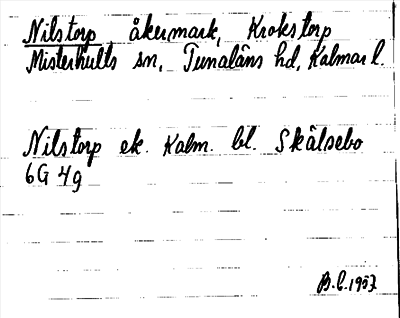 Nilstorp, åkermark, Krokstorp
Misterhults sn, Tunaläns hd, Kalmar l.
Nilstorp ek. Kalm. bl. Skälsebo
6G 4g